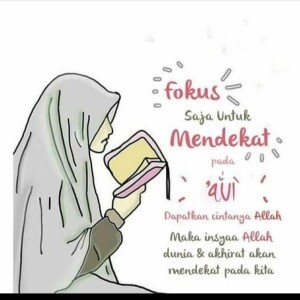 Fokus
Saja Untuk
Mendekat
pada
الله
Dapatkan cintanya Allah
Maka insyaa Allah
dunia & akhirat akan
mendekat pada kita